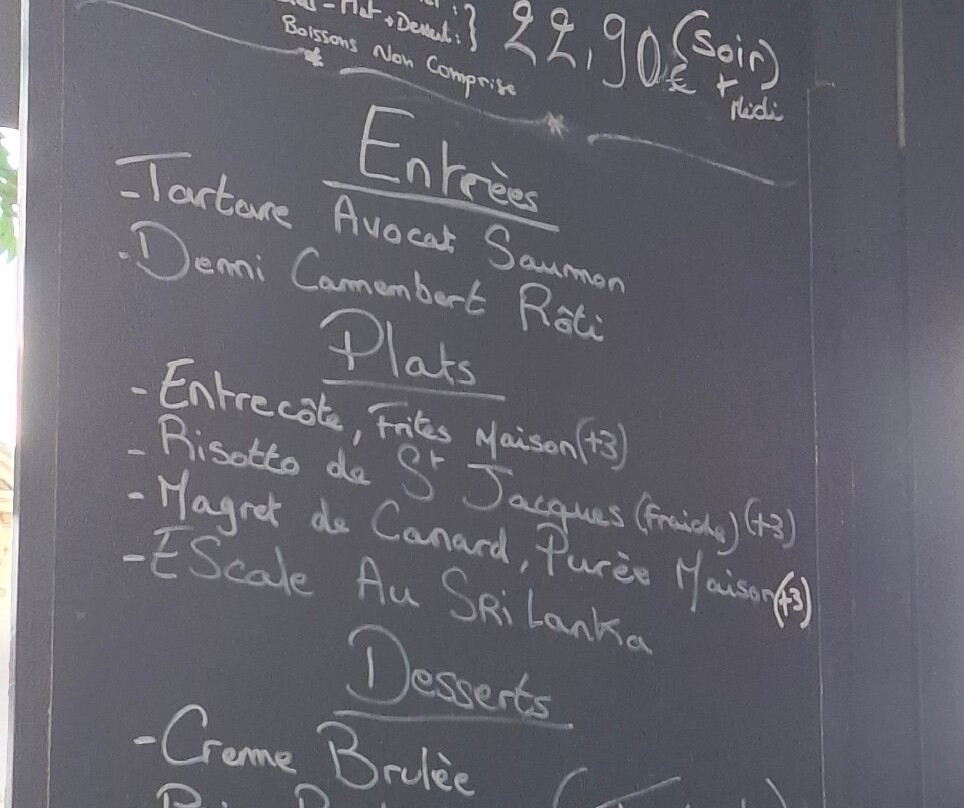 + Dessert : } 22,90€ (Soir)
Boissons Non Comprise + Midi
Entrèes
- Tartare Avocat Saumon
- Demi Camembert Rôti
Plats
- Entrecôte, Frites Maison (+3)
- Risotto de St Jacques (Fraiche) (+3)
- Magret de Canard, Purèe Maison (+3)
- EScale Au SRi Lanka
Desserts
- Creme Brulèe